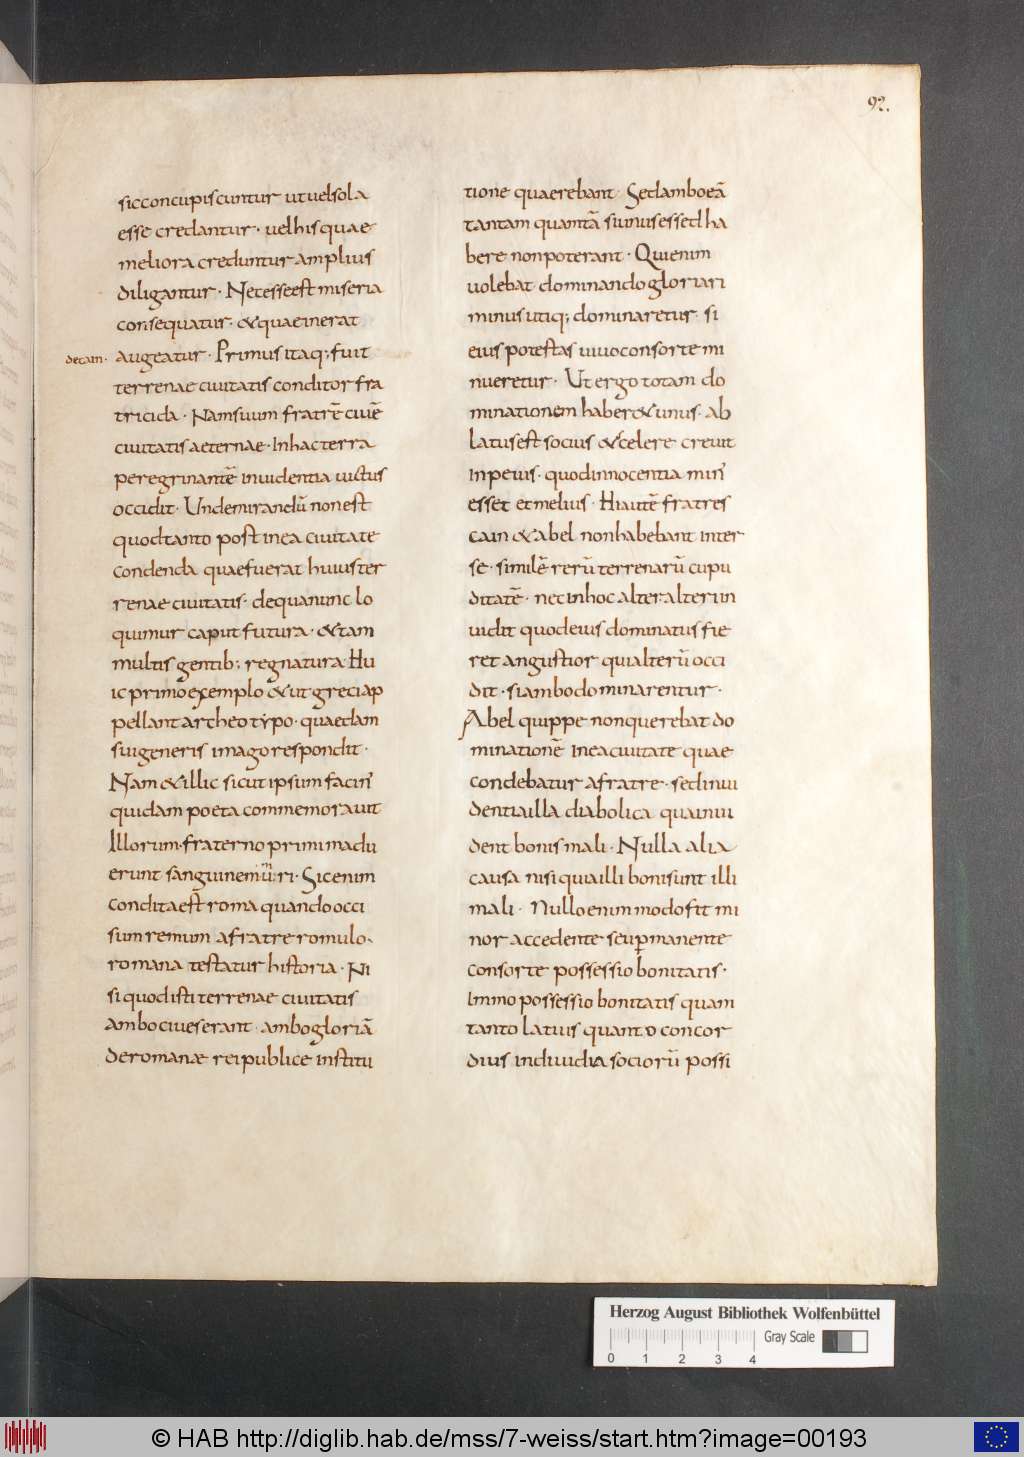 92.
sicconcupiscuntur utvelsola
esse credantur· velhisquae
meliora credunturamplius
diligantur· Necesseest miseria
consequatur· &quaeinerat
decain·
augeatur· Primusitaq; fuit
terrenae civitatis conditor fra
tricida· Namsuum fratrē civē
civitatis aeternae· Inhacterra
peregrinantē invidentia victus
occidit· Undemirandū nonest
quodtanto post inea civitate
condenda quaefuerat huiuster
renae civitatis· dequanunc lo
quimur caput futura· &tam
multis gentib; regnatura Hu
ic primo exemplo &ut greciap
pellant archeotypo· quaedam
suigeneris imago respondit·
Nam &illic sicut ipsum facin'
quidam poeta commemoravit
Illorum·fraterno primi madu
erunt sanguinemūri· Sicenim
conditaest roma quando occi
sum remum afratreromulo·
romana testatur historia· Ni
si quod isti terrenae civitatis
Ambo civeserant· ambogloriā
deromanæ reipublice institu
tione quaerebant· Sedamboeā
tantam quantā siunusessed ha
bere nonpoterant· Quienim
volebat dominandogloriari
minus utiq; dominaretur· si
eius potestas vivoconsorte mi
nueretur· Ut ergo totam do
minationem haber&unus· ab
latusest socius &scelere crevit
inpeius· quodinnocentia min'
esset etmelius· Hiautē fratres
cain &abel nonhabebant inter
se· similē rerū terrenarū cupi
ditatē· necinhoc alteralteriin
vidit quodeius dominatus fie
ret angustior quialterū occi
dit· siambo dominarentur·
Abel quippe nonquerebat do
minationē ineacivitate quae
condebatur afratre· sedinvi
dentiailla diabolica quainvi
dent bonis mali· Nulla alia
causa nisi quiailli bonisunt illi
mali· Nulloenim modofit mi
nor accedente seupmanente
consorte possessio bonitatis·
immo possessio bonitatis quam
tanto latius quanto concor
dius individia sociorū possi
Herzog August Bibliothek Wolfenbüttel
Gray Scale
0 1 2 3 4
© HAB http://diglib.hab.de/mss/7-weiss/start.htm?image=00193